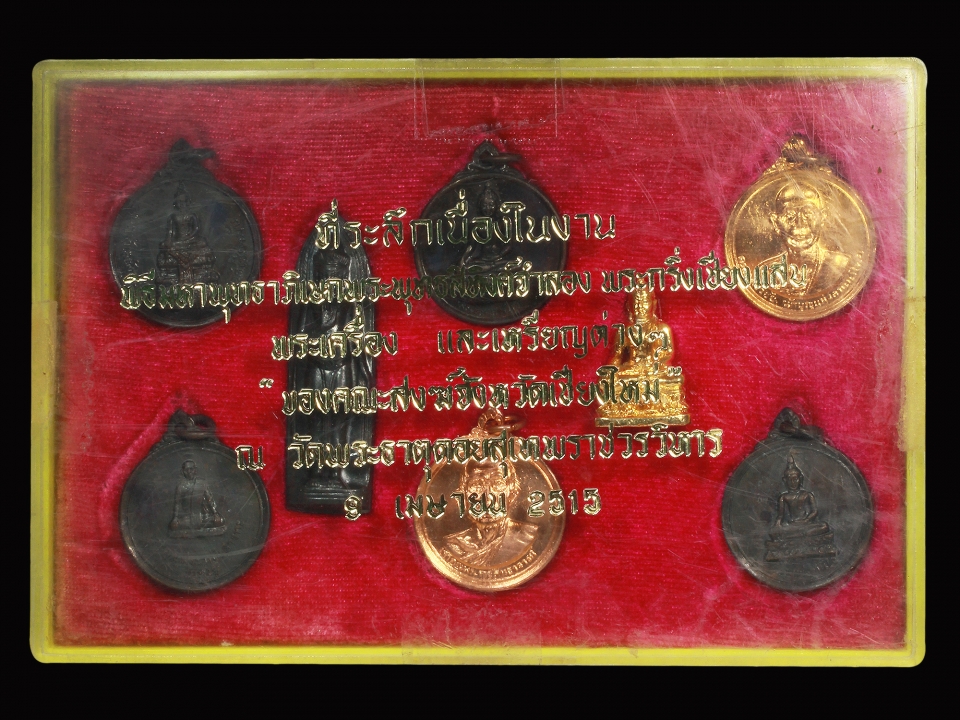 ที่ระลึกเนื่องในงาน
พิธีมหาพุทธาภิเษกพระพุทธสิหิงค์จำลอง พระกริ่งเชียงแสน
พระเครื่อง และเหรียญต่างๆ
"ของคณะสงฆ์จังหวัดเชียงใหม่"
ณ วัดพระธาตุดอยสุเทพราชวรวิหาร
๑ เมษายน 2515